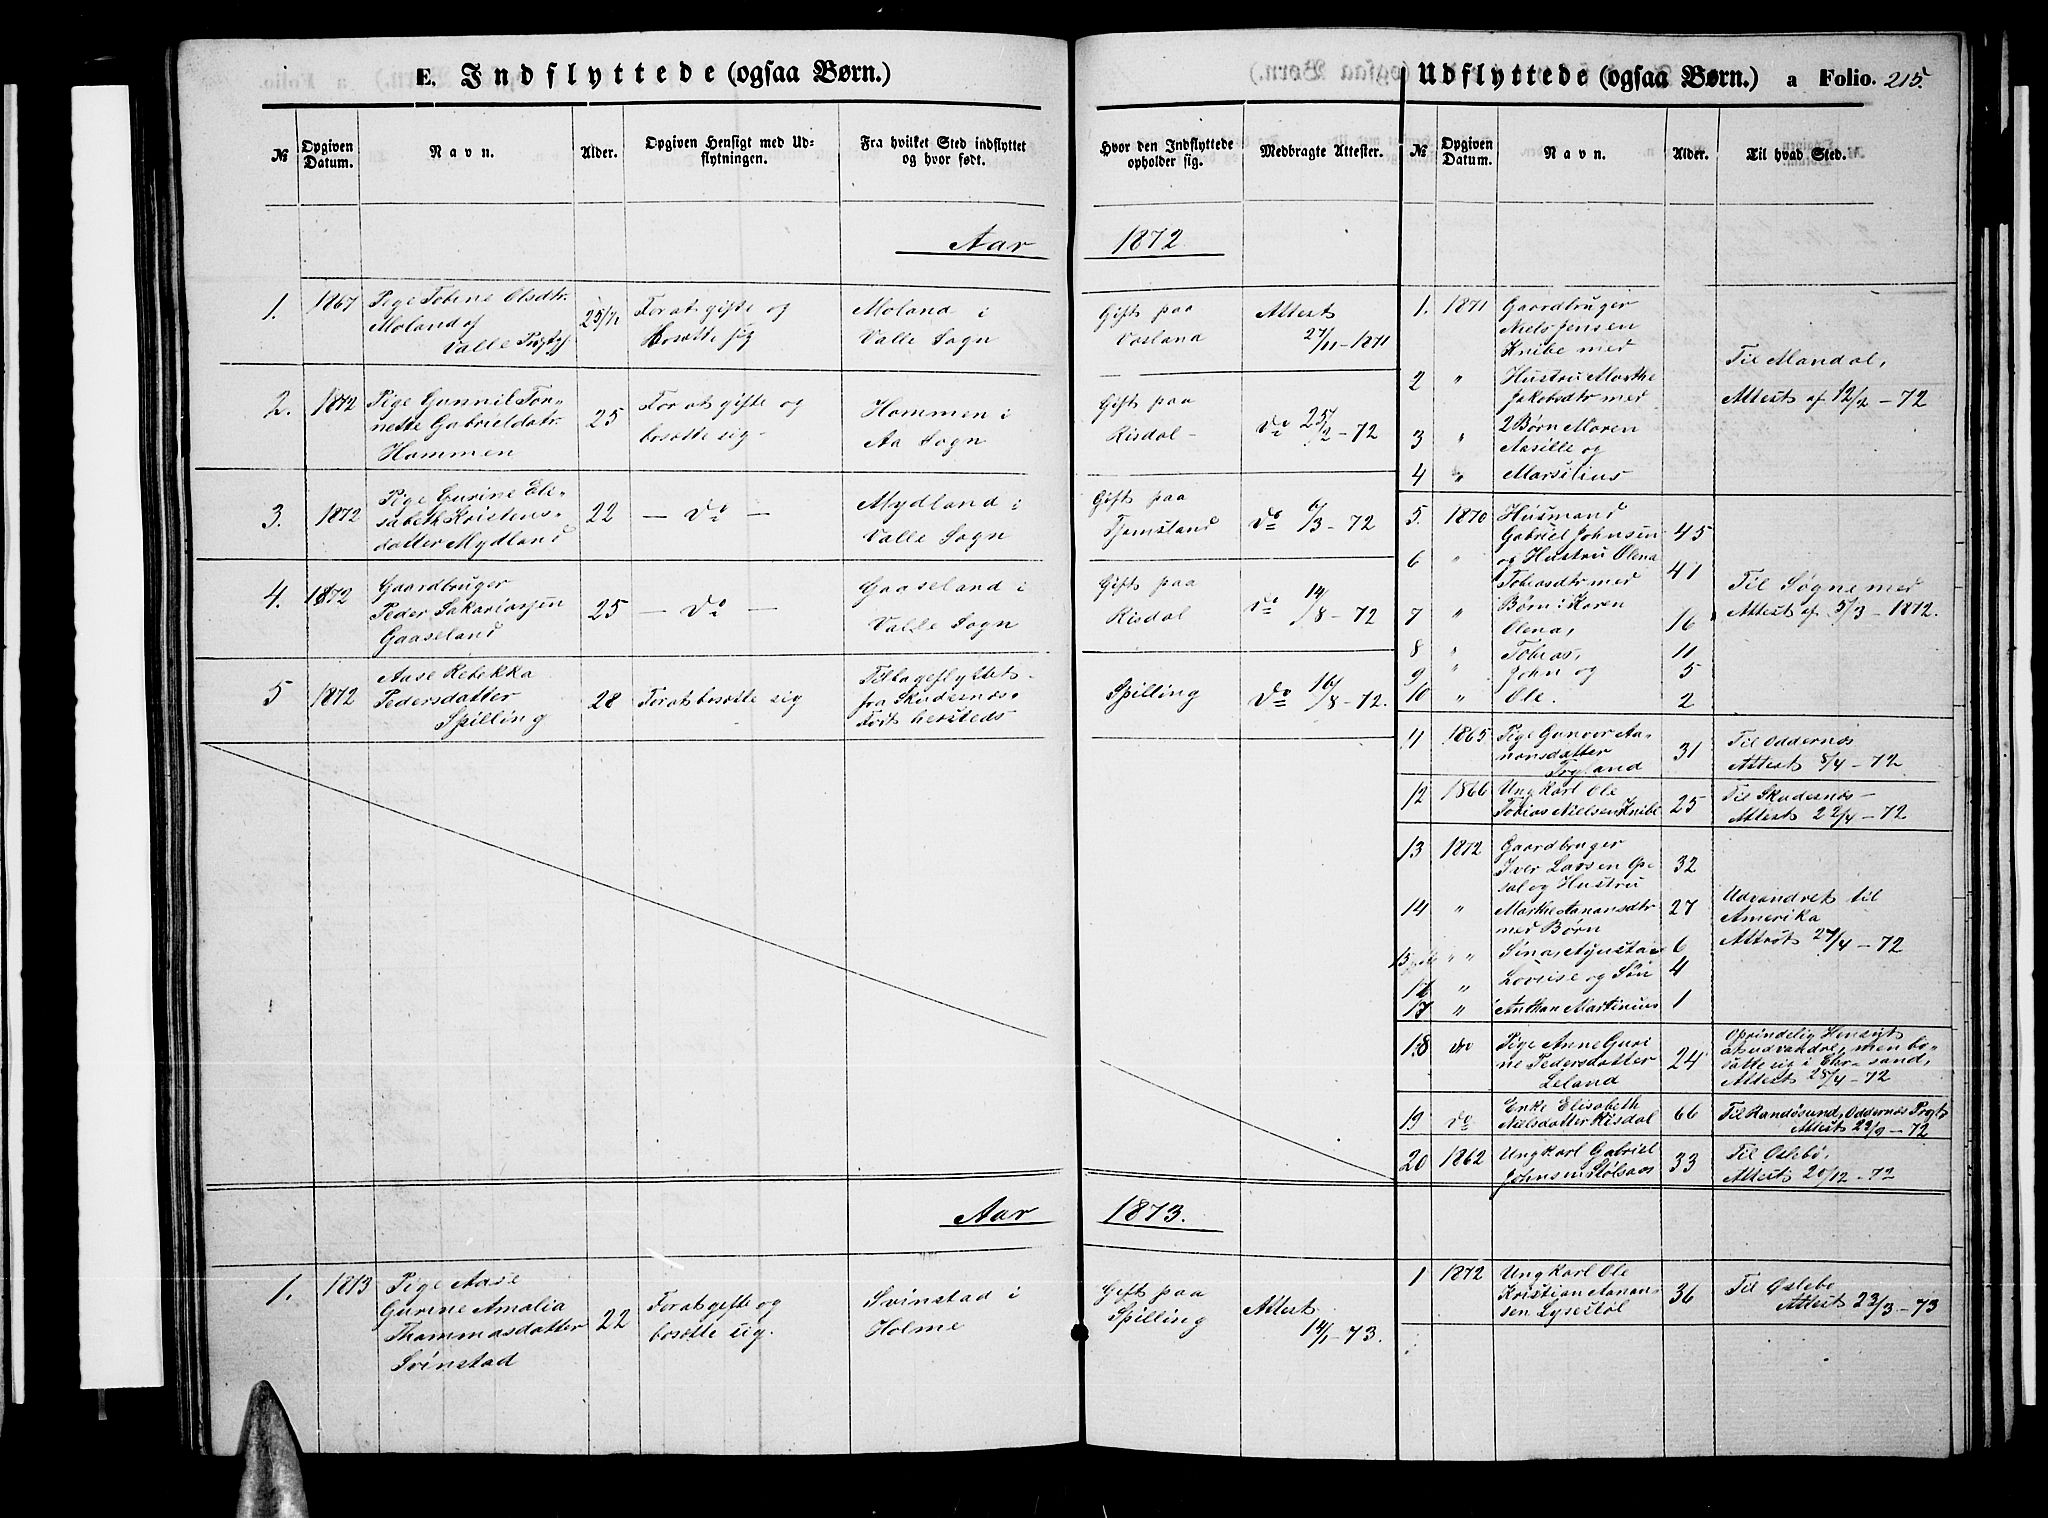 E. Indflyttede (ogsaa Børn.)
Udflyttede (ogsaa Børn.) a Folio. 215.
№
Opgiven Datum.
Navn.
Alder.
Opgiven Hensigt med Ud-
flytningen.
Fra hvilket Sted indflyttet
og hvor født.
Hvor den Indflyttede
opholder sig.
Medbragte Attester.
№
Opgiven Datum.
Navn.
Alder.
Til hvad Sted.
Aar 1872
1. 1867 Pige Tobine Olsdtr.
Moland af
Valle
For at gifte og
bosætte sig
Moland i
Valle Sogn
Gift paa
Attest
27/11-1871
2. 1872 Pige Gunnil Tor-
neste Gabrielsdatr.
Hommen
25
For at gifte og
bosætte sig-
Hommen i
Aa Sogn
Gift paa
Risdal-
do 25/2-72
3. 1872 Pige Gurine Eli-
sabeth Kristens-
datter Mydland
22 - do -
Mydland i
Valle Sogn
Gift paa
Tjomsland
do 6/3-72
4. 1872 Gaardbruger
Peder Sakariassen
Gaaseland
25 - do -
Gaaseland i
Valle Sogn
Gift paa
Risdal
do 14/8-72
5 1872 Aase Rebekka
Pedersdatter
Spilling
28 For at bosætte sig
Tilbageflyttet
fra Skudesnæs.
Født hersteds
Spilling
do 16/8-72.
1. 1871 Gaardbruger
Niels Jensen
Knibe med
2 " Hustru Marthe
Jakobsdtr med
3 " 2 Børn Maren
Aasille og
4 " Marsilius
Til Mandal,
Attest af 12/2-72
5. 1870 Husmand
Gabriel Johnsen 45
6 " og Hustru Olena
Tobiasdtr med 41
7 " Børn: Karen
Olena, 16
8 " Tobias, 11
9 " John og 5
10 " Ole. 2
Til Søgne med
Attest af 5/3-1872.
11 1865 Pige Gunvor Aa-
nonsdatter
Tryland
31
Til Oddernæs
Attest 8/4-72
12 1866 Ungkarl Ole
Tobias Nielsen Knibe
25
Til Skudesnæs-
Attest 22/4-72
13 1872 Gaardbruger
Iver Larsen
og Hustru
32
14 " Marthe Aanansdtr
med Børn
27
6
" Lovise og Søn 4
17 " Anthan Martinius 1
Udvandret til
Amerika
Attest 27/4-72
18 do Pige Anne Guri-
ne Pedersdatter
Leland
24
Oprindelig Hensigt
at udvandre, men bo-
satte sig i Chr-sand,
Attest 28/4-72
19 do Enke Elisabeth
Nielsdatter Risdal
66
Til Randøsund, Oddernæs Prgt
Attest 23/9-72
20 1862 Ungkarl Gabriel
Johnsen Stølsaas
33
Til Øslebø,
Attest 20/12-72
Aar 1873.
1. 1873 Pige Aase
Gurine Amalia
Thommasdatter
Svinstad
22
For at gifte og
bosætte sig.
Svinstad i
Holme
Gift paa
Spilling
Attest
14/1-73.
1 1872 Ungkarl Ole
Kristian Aanan-
sen Lysestøl
36
Til Øslebø
Attest 23/3-73